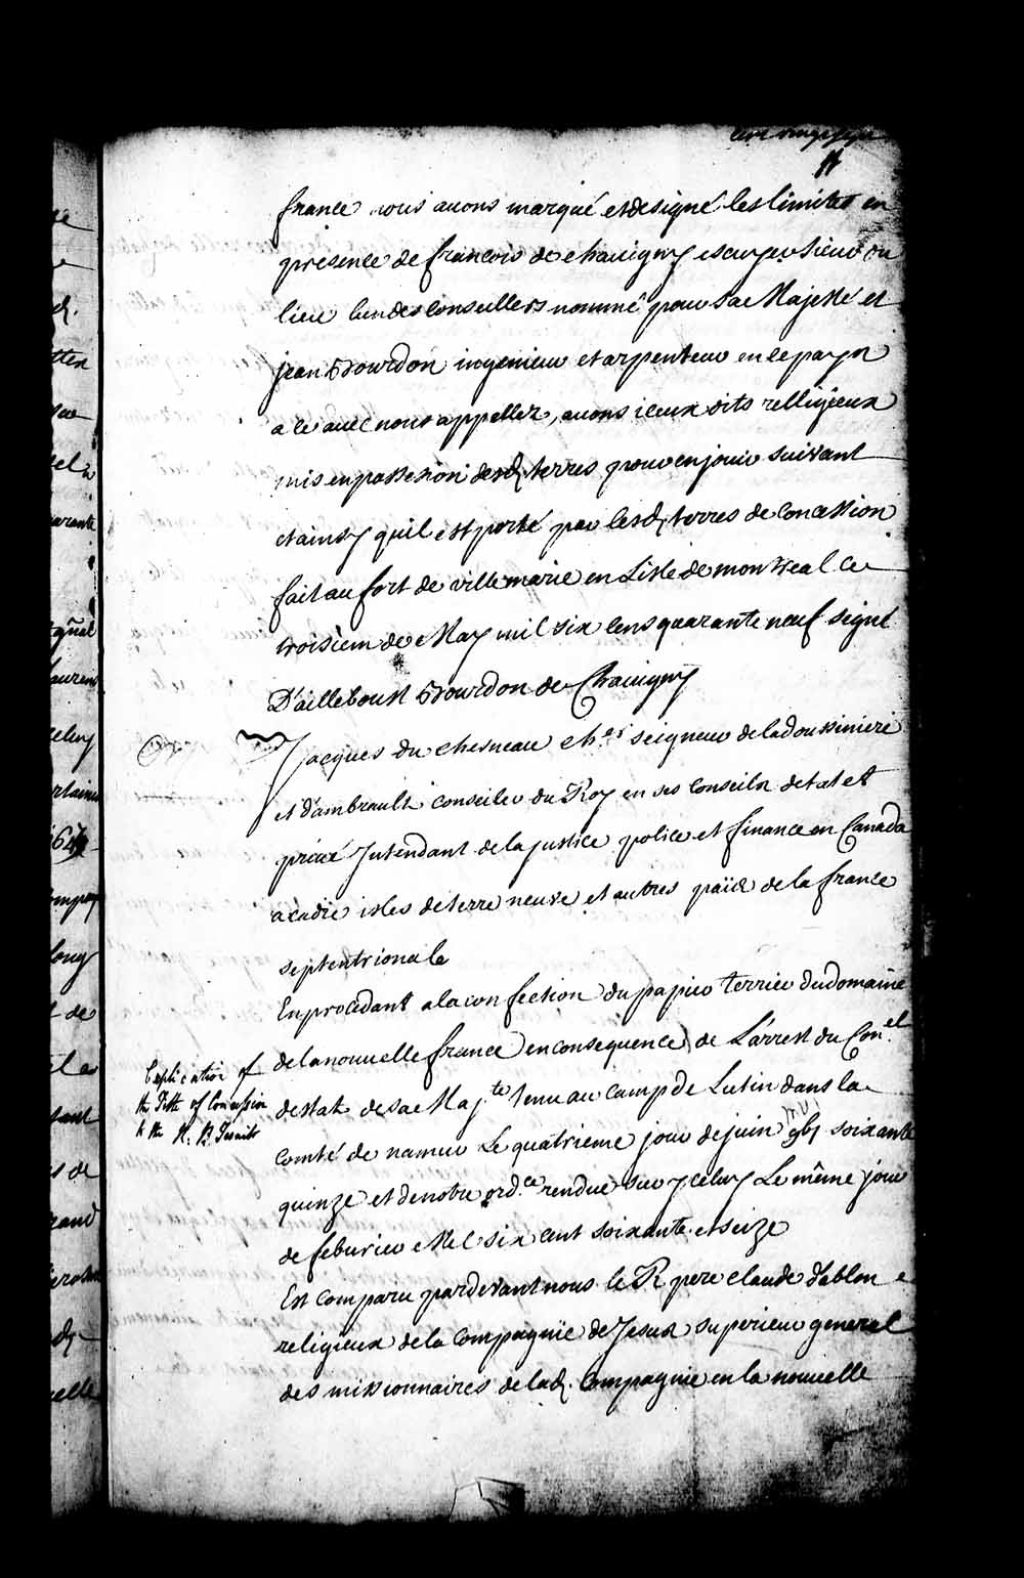 cent vingt sept
france nous auons marqué et designé les limites en
presence de francois de chauigny escuyer sieur du
lieu lun des conseillers nommé pour Sa Majesté et
jean Bourdon ingenieur et arpenteur en ce pays
a ce auec nous appellez, auons iceux dits relligieux
mis en possession desd. terres pour en jouir suivant
et ainsy quil est porté par lesd. terres de concession
fait au fort de ville marie en Lisle de montreal ce
troisiem de May mil six cens quarante neuf signé
D'ailleboust Bourdon de Chauigny
Jacques du chesneau cher seigneur de la doussiniere
et d'ambrault conseiler du Roy en ses conseils detat et
priué Intendant de la justice police et finance en Canada
acadie isles de terre neuve et autres païs de la france
septentrionale
En procedant a la confection du papier terrier du domaine
de la nouuelle france en consequence de L'arrest du Con.el
destat de sa Maj.te tenu au camp de Lutin dans la
comté de namur Le quatrieme jour de juin gbj soixante
quinze et de notre ord.ce rendue sur yceluy Le même jour
de feburier Mil six cent soixante et seize
Est comparu pardevant nous le R pere claude dablon
religieux de la compagnie de Jesus superieur general
des missionnaires de lad. Compagnie en la nouuelle
Explication of
the Title of Concession
to the R. P. Jesuits